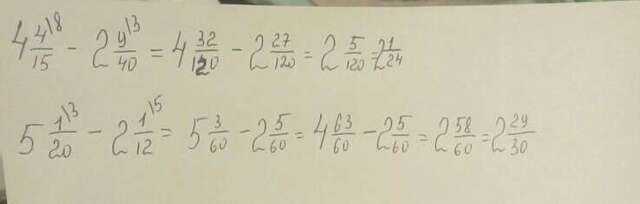 4 4\8/15 - 2 9\3/40 = 4 32/120 - 2 27/120 = 2 5/120 = 2 1/24
5 1\3/20 - 2 1\5/12 = 5 3/60 - 2 5/60 = 4 63/60 - 2 5/60 = 2 58/60 = 2 29/30